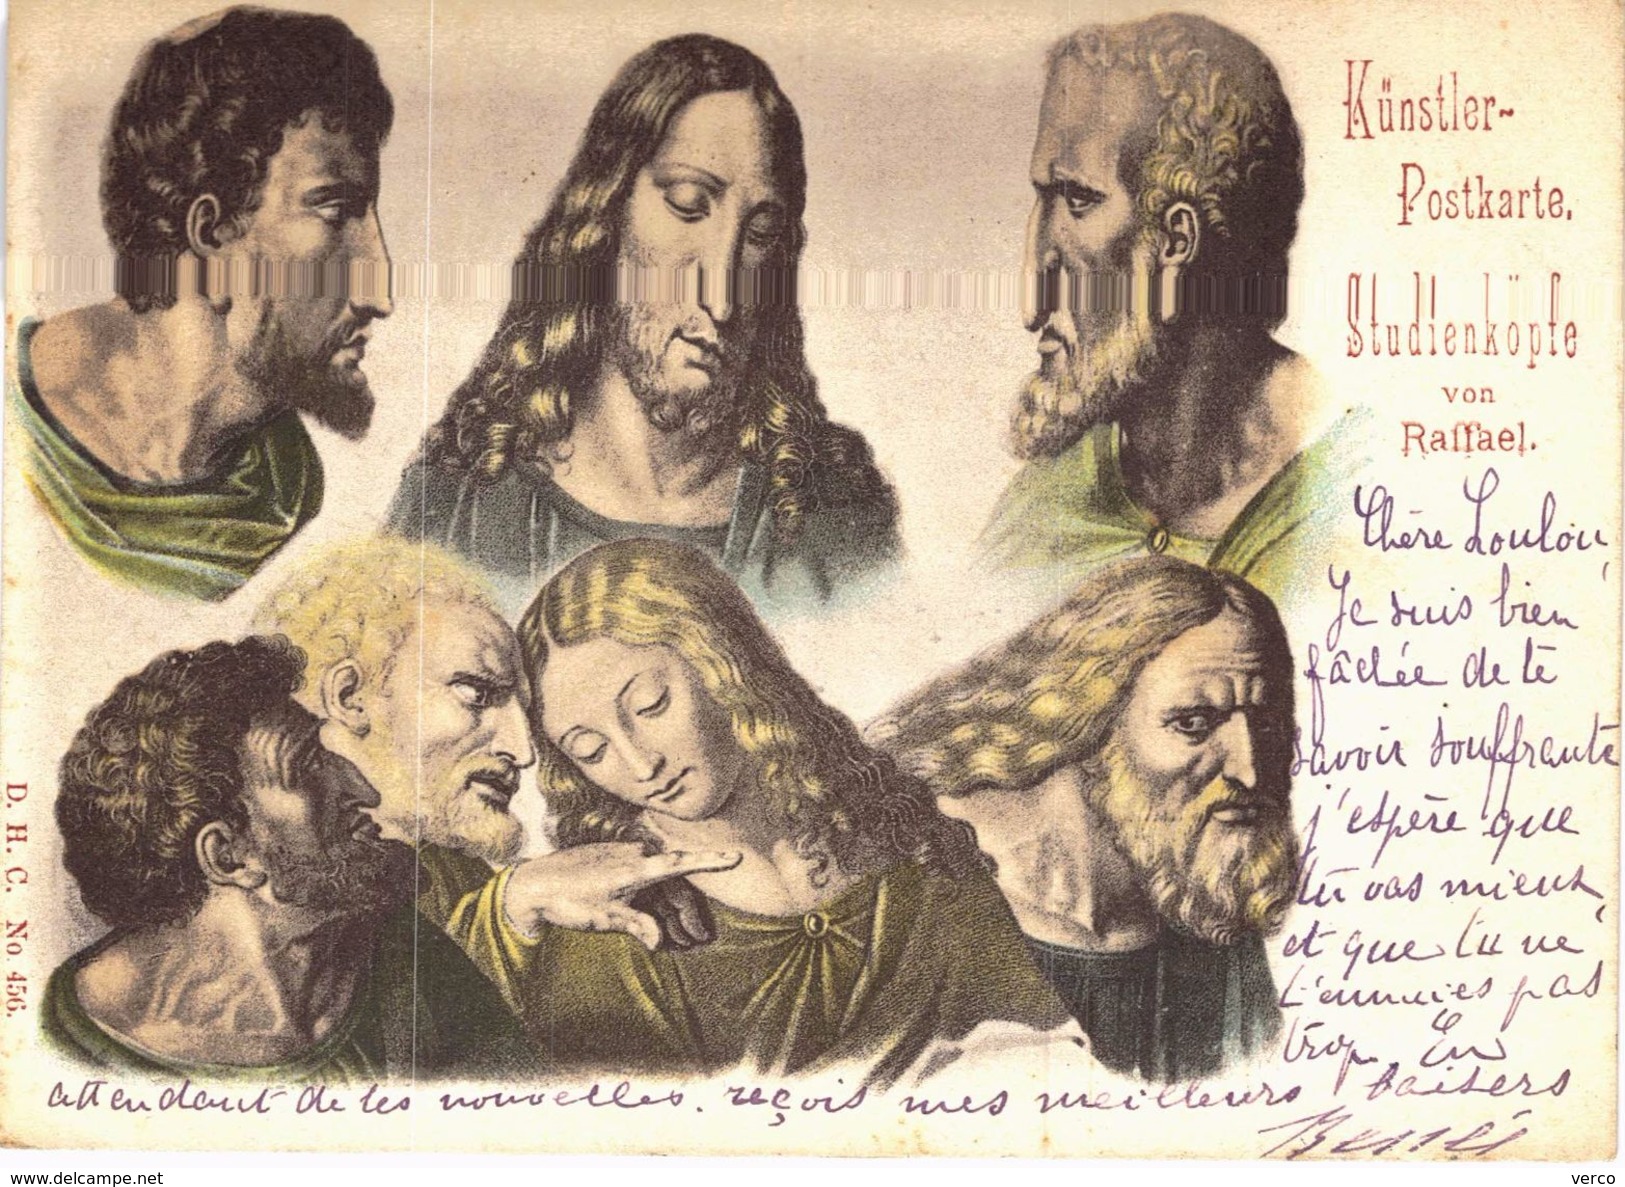 Künstler-
Postkarte.
Studienköpfe
von
Raffael.
Chère Loulou,
Je suis bien
fâchée de te
savoir souffrante
j'espère que
tu vas mieux,
et que tu ne
t'ennuies pas
trop. En
attendant de tes nouvelles. reçois mes meilleurs baisers
D. H. C. No. 456.
delcampe.net
verco